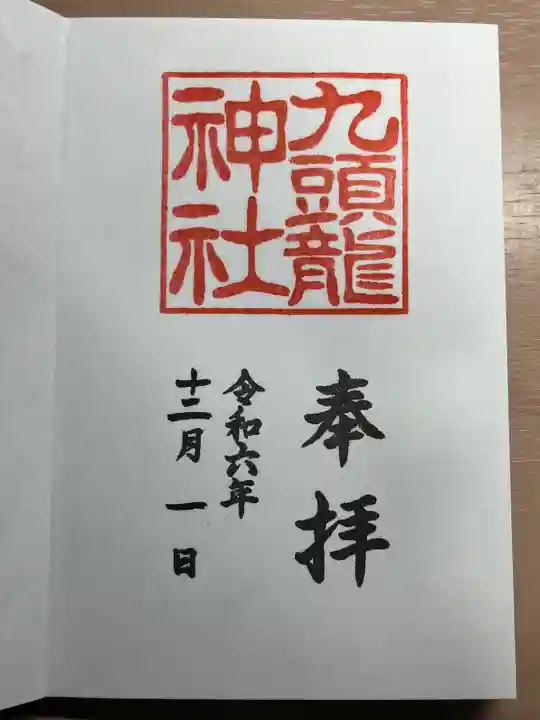 九頭龍
神社
奉拝
令和六年
十二月一日